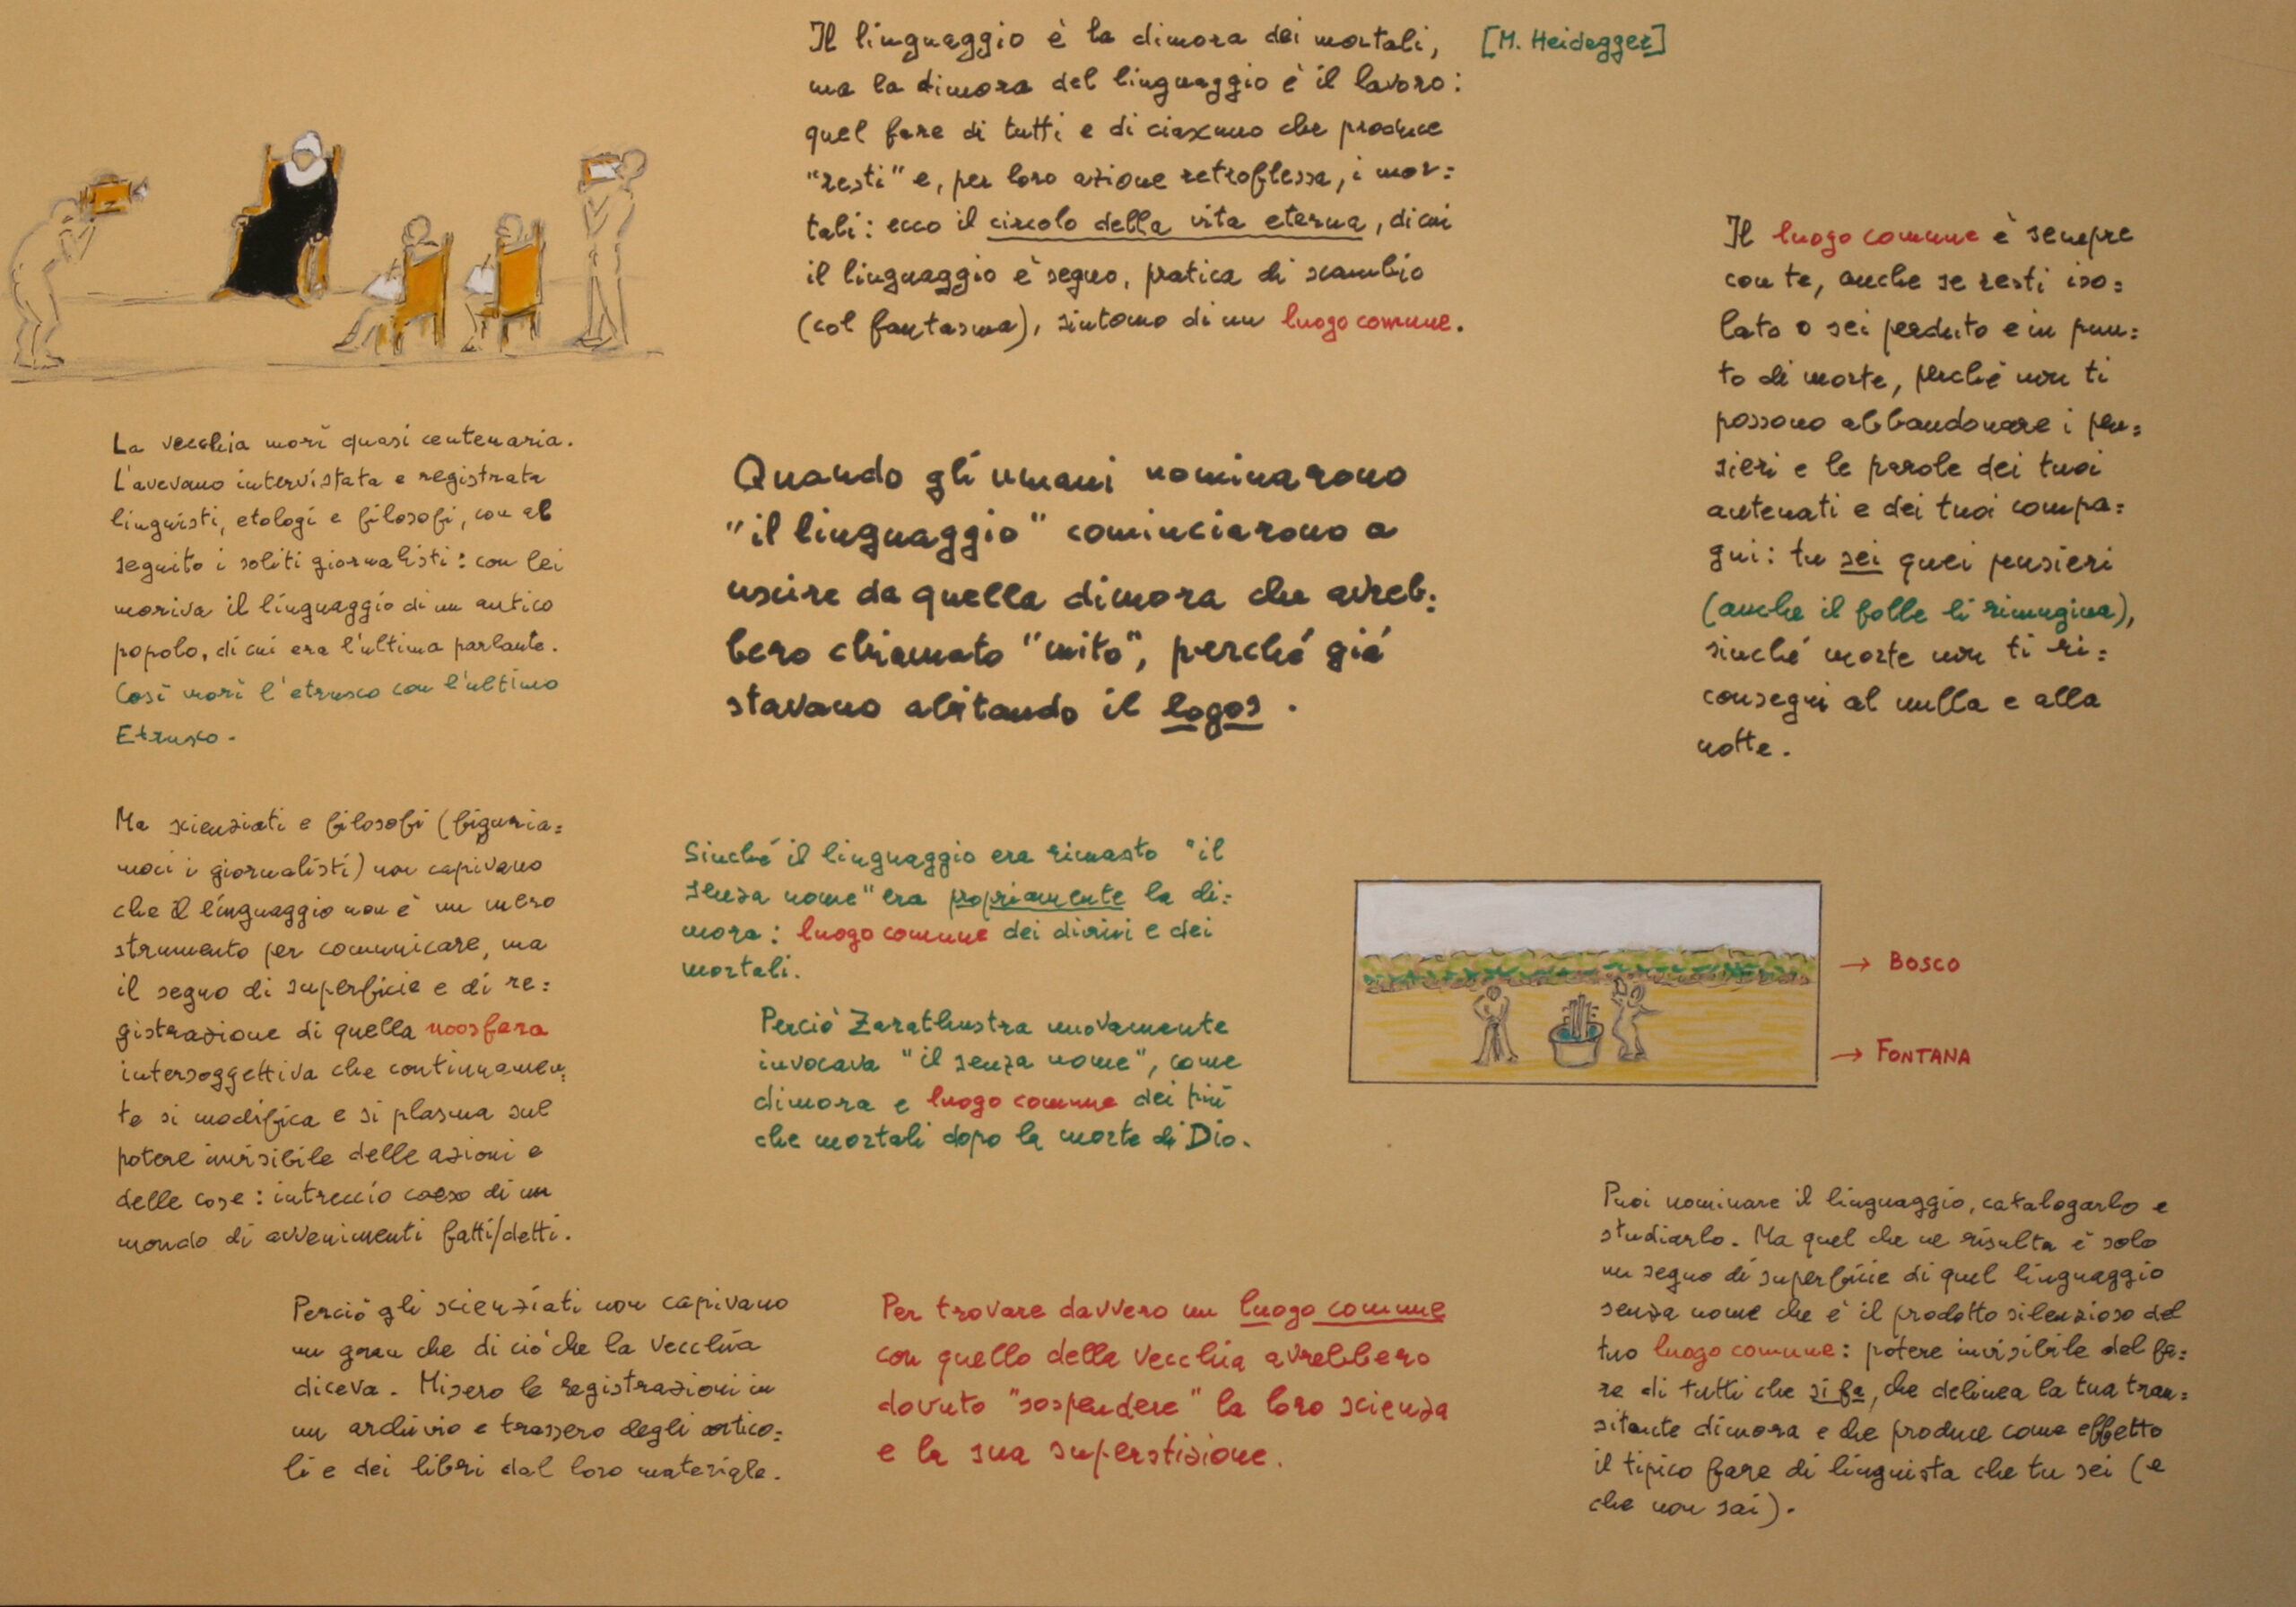 Il linguaggio è la dimora dei mortali, [M. Heidegger]
ma la dimora del linguaggio è il lavoro:
quel fare di tutti e di ciascuno che produce
"resti" e, per loro azione retroflessa, i mor=
tali: ecco il circolo della vita eterna, di cui
il linguaggio è segno, pratica di scambio
(col fantasma), sintomo di un luogo comune.
La vecchia morì quasi centenaria.
L'avevano intervistata e registrata
linguisti, etologi e filosofi, con al
seguito i soliti giornalisti: con lei
moriva il linguaggio di un antico
popolo, di cui era l'ultima parlante.
Così morì l'etrusco con l'ultimo
Etrusco.
Ma scienziati e filosofi (figuria=
moci i giornalisti) non capivano
che il linguaggio non è un mero
strumento per comunicare, ma
il segno di superficie e di re=
gistrazione di quella noosfera
intersoggettiva che continuamen=
te si modifica e si plasma sul
potere invisibile delle azioni e
delle cose: intreccio coeso di un
mondo di avvenimenti fatti/detti.
Perciò gli scienziati non capivano
un gran che di ciò che la vecchia
diceva. Misero le registrazioni in
un archivio e trassero degli artico=
li e dei libri dal loro materiale.
Quando gli umani nominarono
"il linguaggio" cominciarono a
uscire da quella dimora che avreb=
bero chiamato "mito", perché già
stavano abitando il logos.
Sinché il linguaggio era rimasto "il
senza nome" era propriamente la di=
mora: luogo comune dei divini e dei
mortali.
Perciò Zarathustra nuovamente
invocava "il senza nome", come
dimora e luogo comune dei più
che mortali dopo la morte di Dio.
Per trovare davvero un luogo comune
con quello della vecchia avrebbero
dovuto "sospendere" la loro scienza
e la sua superstizione.
Il luogo comune è sempre
con te, anche se resti iso=
lato o sei perduto e in pun=
to di morte, perché non ti
possono abbandonare i pen=
sieri e le parole dei tuoi
antenati e dei tuoi compa=
gni: tu sei quei pensieri
(anche il folle li rimugina),
sinché morte non ti ri=
consegni al nulla e alla
notte.
→ BOSCO
→ FONTANA
Puoi nominare il linguaggio, catalogarlo e
studiarlo. Ma quel che ne risulta è solo
un segno di superficie di quel linguaggio
senza nome che è il prodotto silenzioso del
tuo luogo comune: potere invisibile del fa=
re di tutti che si fa, che delinea la tua tran=
sitante dimora e che produce come effetto
il tipico fare di linguista che tu sei (e
che non sai).